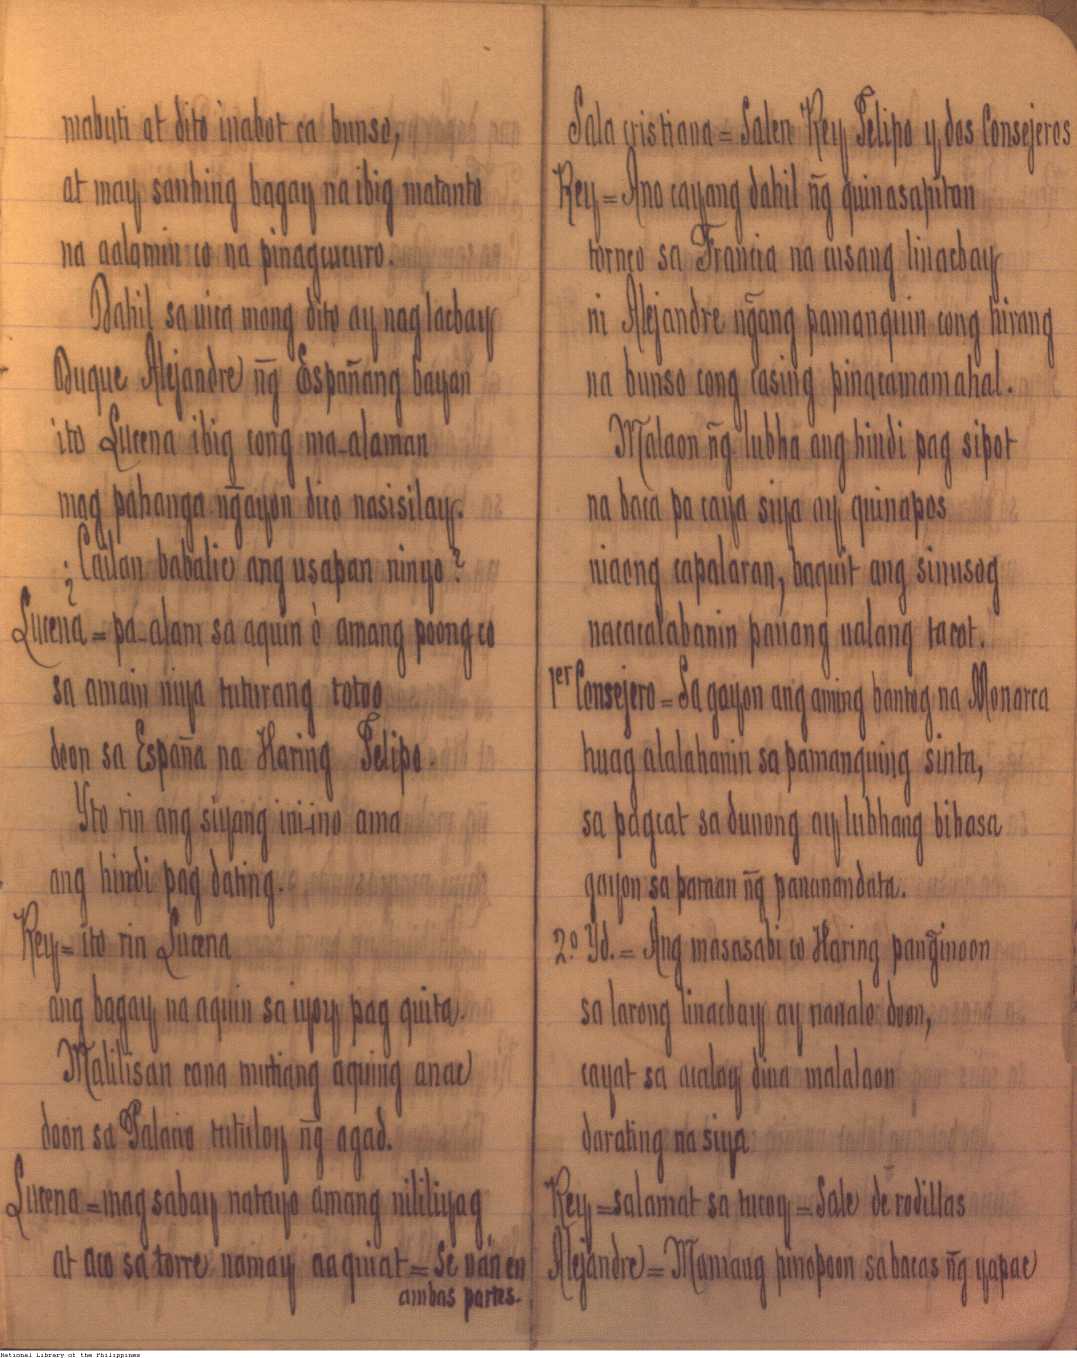 mabuti at dito inabot ca bunso,
at may sanhing bagay na ibig matanto
na aalamin co na pinagcucuro.
Dahil sa uica mong dito ay naglacbay
Duque Alejandre ñg Españang bayan
ito Lucena ibig cong ma-alaman
mag pahanga ñgayon dico nasisilay.
¿Cailan babalic ang usapan ninyo?
Lucena = pa-alam sa aquin ò amang poong co
sa amain niya tuturang totoo
doon sa España na Haring Felipe.
Yto rin ang siyang ini-ino ama
ang hindi pag dating.
Rey = ito rin Lucena
ang bagay na aquin sa iyoy pag quita.
Malilisan cana mutiang aquing anac
doon sa Palacio tutuloy ñg agad.
Lucena = mag sabay natayo amang nililiyag
at aco sa torre namay aaquiat = Se ván en
ambas partes.
Sala cristiana = Salen Rey Felipo y dos Consejeros
Rey = Ano cayang dahil ñg quinasapitan
torneo sa Francia na cusang linacbay
ni Alejandre ñgang pamanquin cong hirang
na bunso cong casing pinacamamahal.
Malaon ñg lubha ang hindi pag sipot
na baca pa caya siya ay quinapos
niaong capalaran, baquit ang sinusog
nacacalabanin panang ualang tacot.
1er Consejero = Sa gayon ang aming bantog na Monarca
huag alalahanin sa pamanquing sinta,
sa pagcat sa dunong ay lubhang bihasa
gayon sa paraan ñg pananandata.
2.º Yd. = Ang masasabi co Haring pañginoon
sa larong linacbay ay nanalo doon,
cayat sa acalay diua malalaon
darating na siya
Rey = salamat sa tucoy = Sale de rodillas
Alejandre = Mamang pinopoon sa bacas ñg yapac